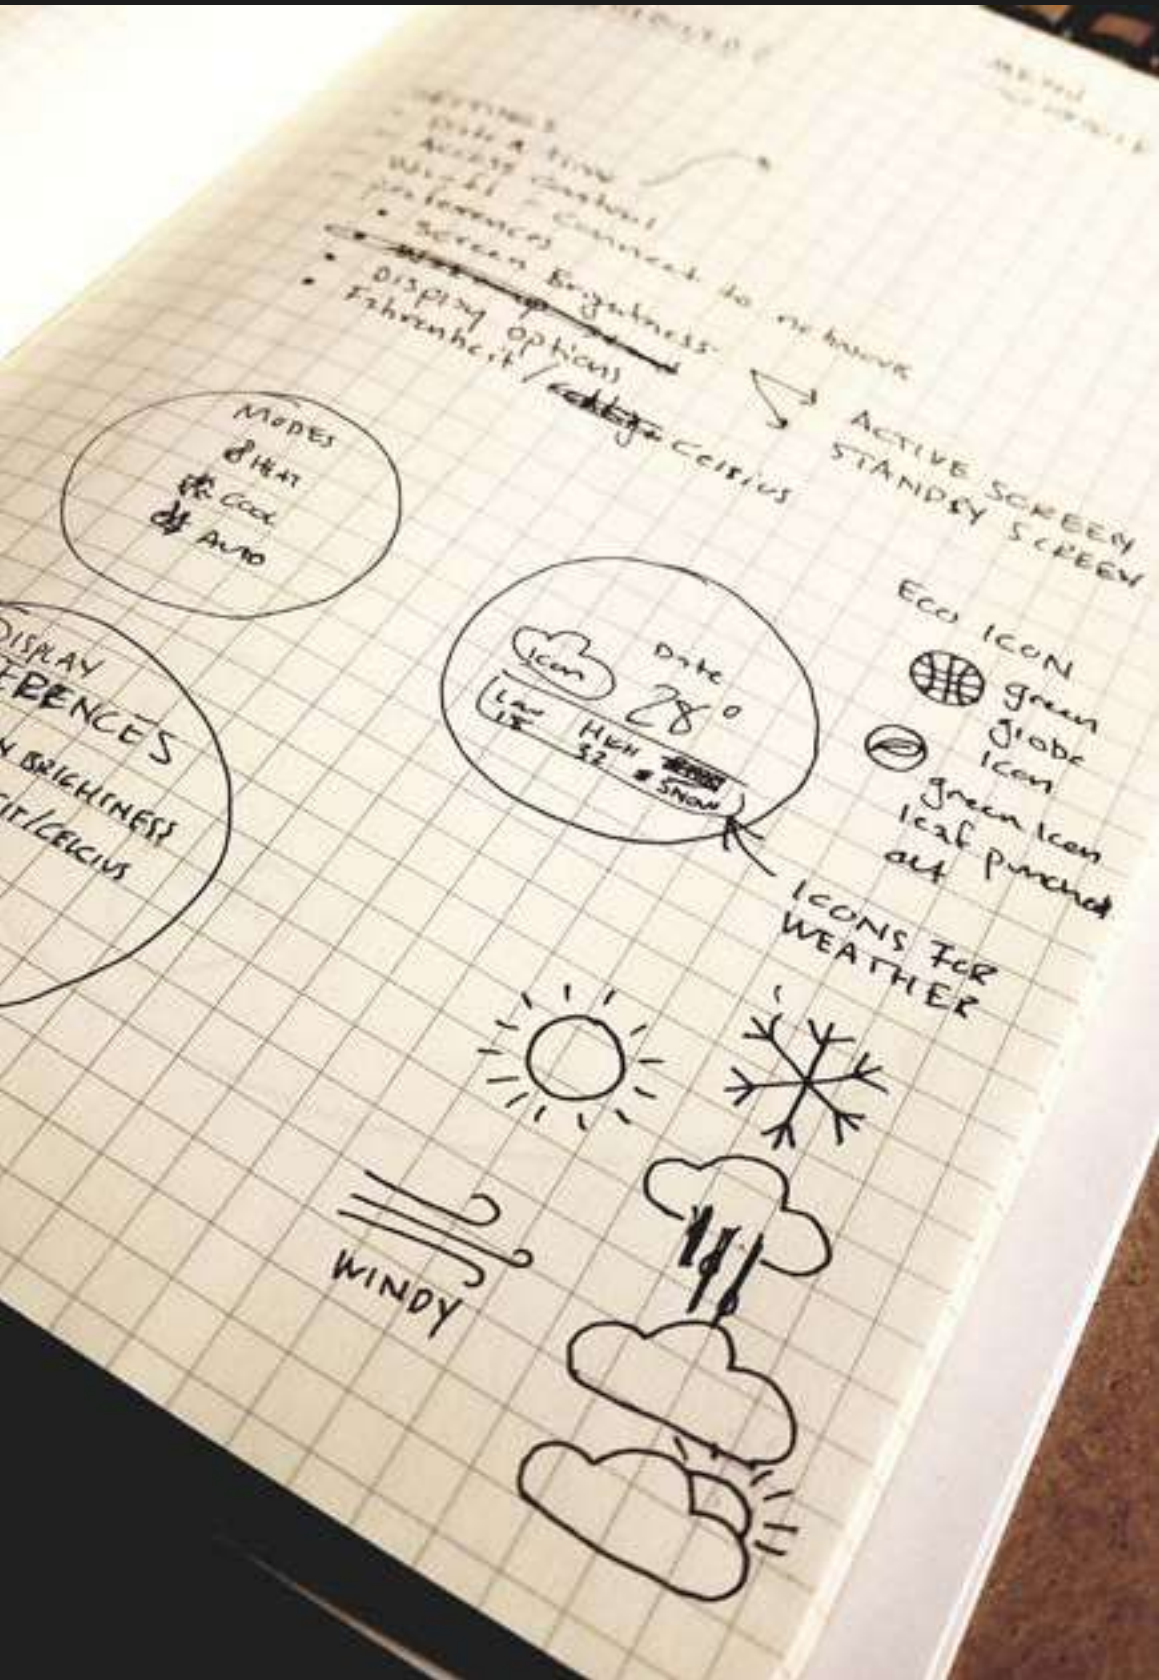 SETTINGS
- Date & Time
- Access Control
- Connect to network
- Preferences
• Screen Brightness
• Display Options
• Fahrenheit / Celsius
ACTIVE SCREEN
STANDBY SCREEN
MODES
HEAT
COOL
AUTO
DISPLAY
BRIGHTNESS
IT/CELCIUS
Icon
Date
28°
Low
HIGH
32
SNOW
ECO ICON
green
globe
Icon
green Icon
leaf punched
out
ICONS FOR
WEATHER
WINDY